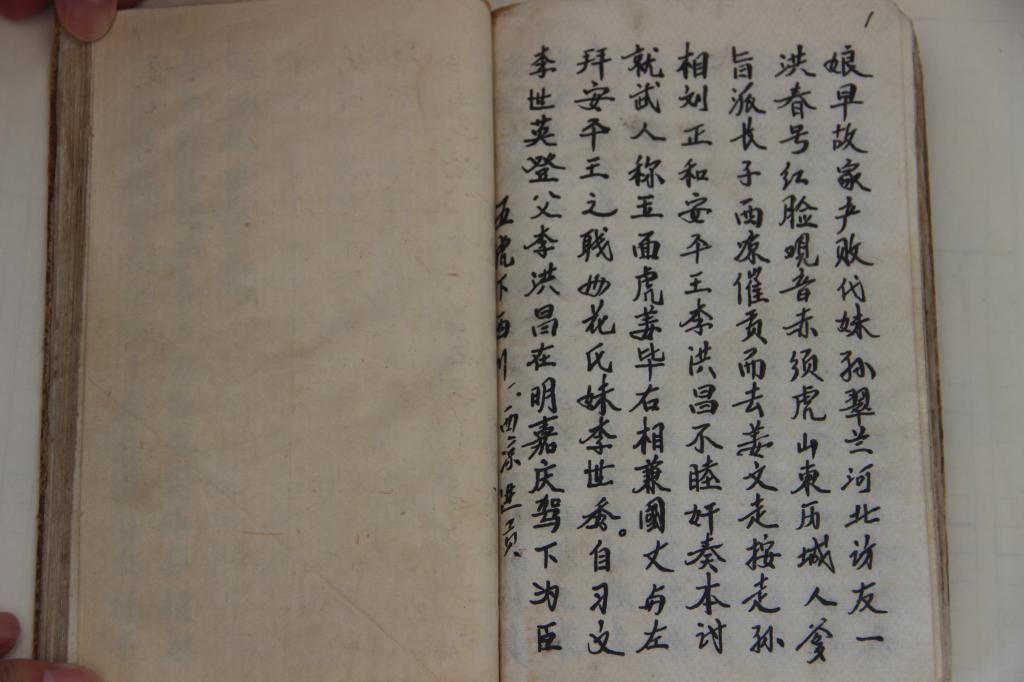 1
五虎下西川、西凉进贡
李世英登父李洪昌在明嘉庆驾下为臣
拜安平王之职母花氏妹李世秀。自习文
就武人称玉面虎姜毕右相兼國丈与左
相刘正和安平王李洪昌不睦奸奏本讨
旨派长子西凉催贡而去姜文走按走孙
洪春号红脸观音赤须虎山东历城人爹
娘早故家尹败代妹孙翠兰河北访友一